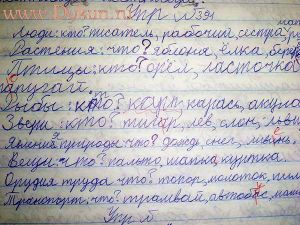 www.Bykun.ru
Упр №391
Люди: кто? писатель, рабочий, сестра,
Растения: что? яблоня, ёлка, берё
Птицы: кто? орёл, ласточка
попугай.
Рыбы: кто? карп карась, акула
Звери: кто? тигар, лев, слон,
Явлений природы: что? дождь, снег,
Вещи: что? пальто, шапка, куртка.
Орудия труда что? топор, молоток, пил
Транспорт: что? трамвай, автобус, маши
Упр №